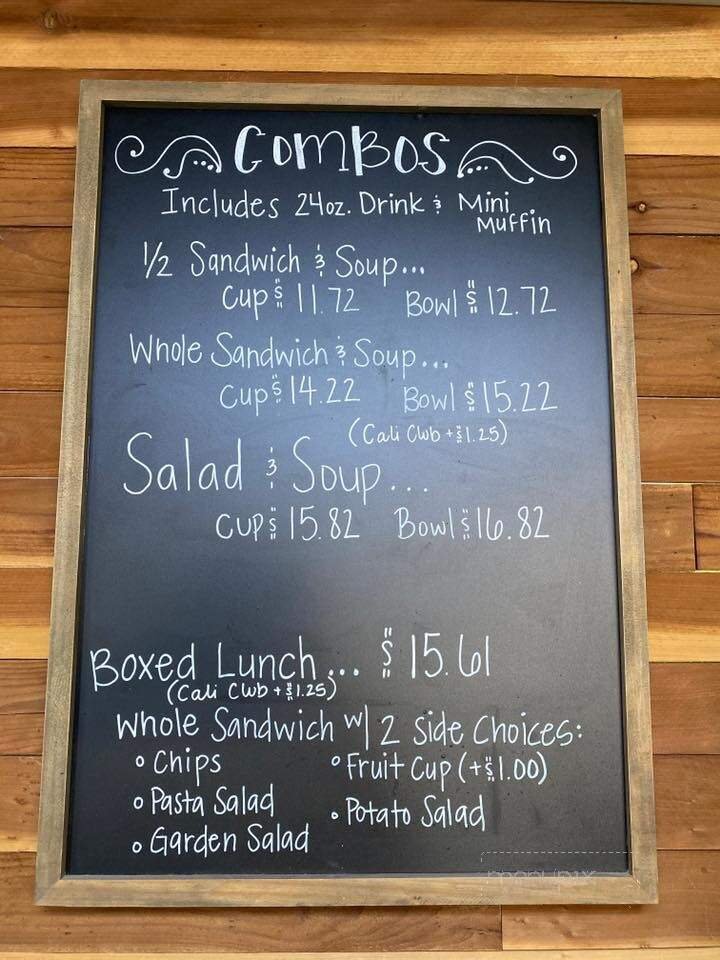 Combos
Includes 24oz. Drink & Mini
Muffin
1/2 Sandwich & Soup...
Cup $ 11.72 Bowl $ 12.72
Whole Sandwich & Soup...
Cup $ 14.22 Bowl $ 15.22
(Cali Club +$1.25)
Salad & Soup...
Cup $ 15.82 Bowl $ 16.82
Boxed Lunch... $ 15.61
(Cali Club +$1.25)
Whole Sandwich w/ 2 Side Choices:
◦ Chips ◦ Fruit Cup (+$1.00)
◦ Pasta Salad • Potato Salad
◦ Garden Salad
menupix